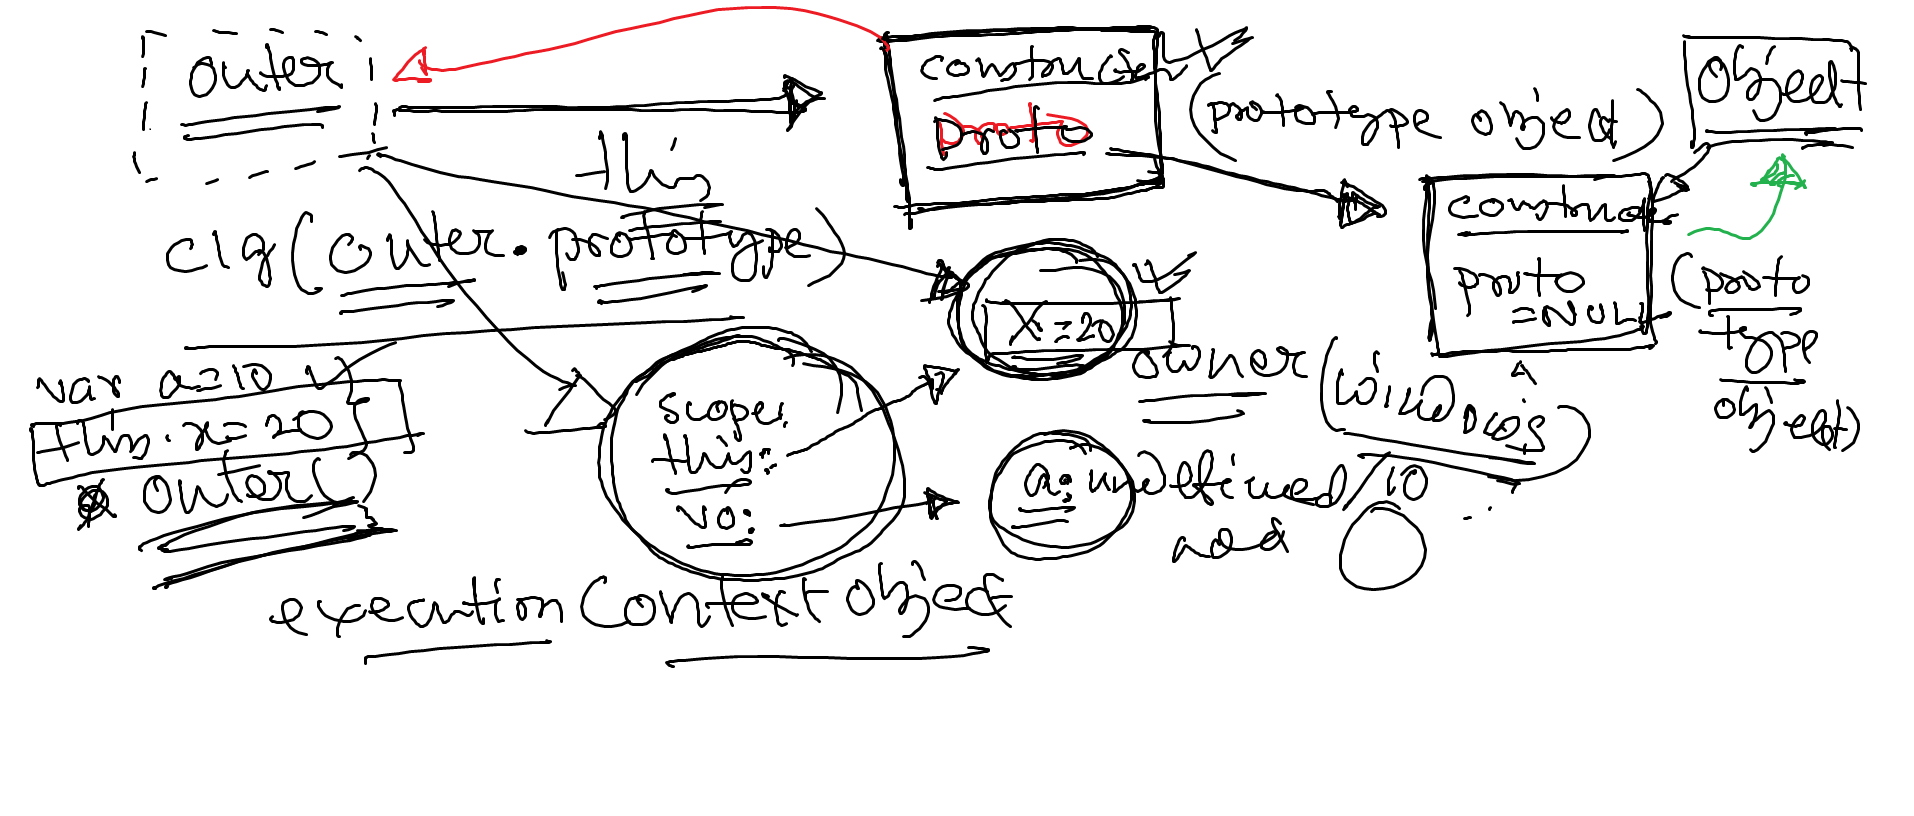 outer
constructor
proto
(prototype object)
object
this
constructor
proto
=NULL
(proto
type
object)
clg(outer.prototype)
X=20
owner (windows)
var a=10
this.x=20
outer()
scope:
this:
vo:
a: undefined/10
execution Context object